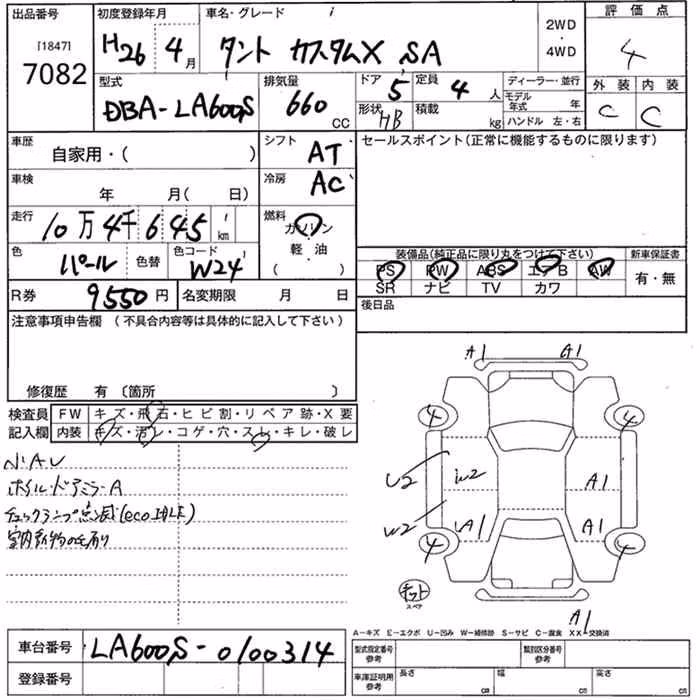 出品番号 初度登録年月 車名・グレード 評価点
[1847]
7082
H26 4月 タント カスタムX SA 2WD・4WD 4
型式 排気量 ドア 定員 ディーラー・並行 外装 内装
DBA-LA600S 660 CC 5 4人 モデル年式 年 C C
形状 HB 積載 kg ハンドル 左・右
車歴 シフト セールスポイント(正常に機能するものに限ります)
自家用・( ) AT
車検 冷房
年 月( 日) AC
走行 燃料
10万4千645 km ガソリン・軽油
色 色コード 装備品(純正品に限り丸をつけて下さい) 新車保証書
パール 色替 W24 ( ) PS PW ABS エアB AW 有・無
SR ナビ TV カワ
R券 9550円 名変期限 月 日 後日品
注意事項申告欄 (不具合内容等は具体的に記入して下さい)
A1 A1
修復歴 有 〔箇所 〕
検査員 FW キズ・飛石・ヒビ割・リペア跡・X要 4 4
記入欄 内装 キズ・汚レ・コゲ・穴・スレ・キレ・破レ
小AU
U2 W2 A1
ホイル・ドアミラーA
チェックランプ点滅(eco IDLE)
W2 A1 A1
室内動物の毛有り
4 4
キット
スペア
A1
A-キズ E-エクボ U-凹み W-補修跡 S-サビ C-腐食 XX-交換済
車台番号 LA600S-0100314 型式指定番号 参考 類別区分番号 参考
登録番号 車庫証明用 参考 長さ cm 幅 cm 高さ cm